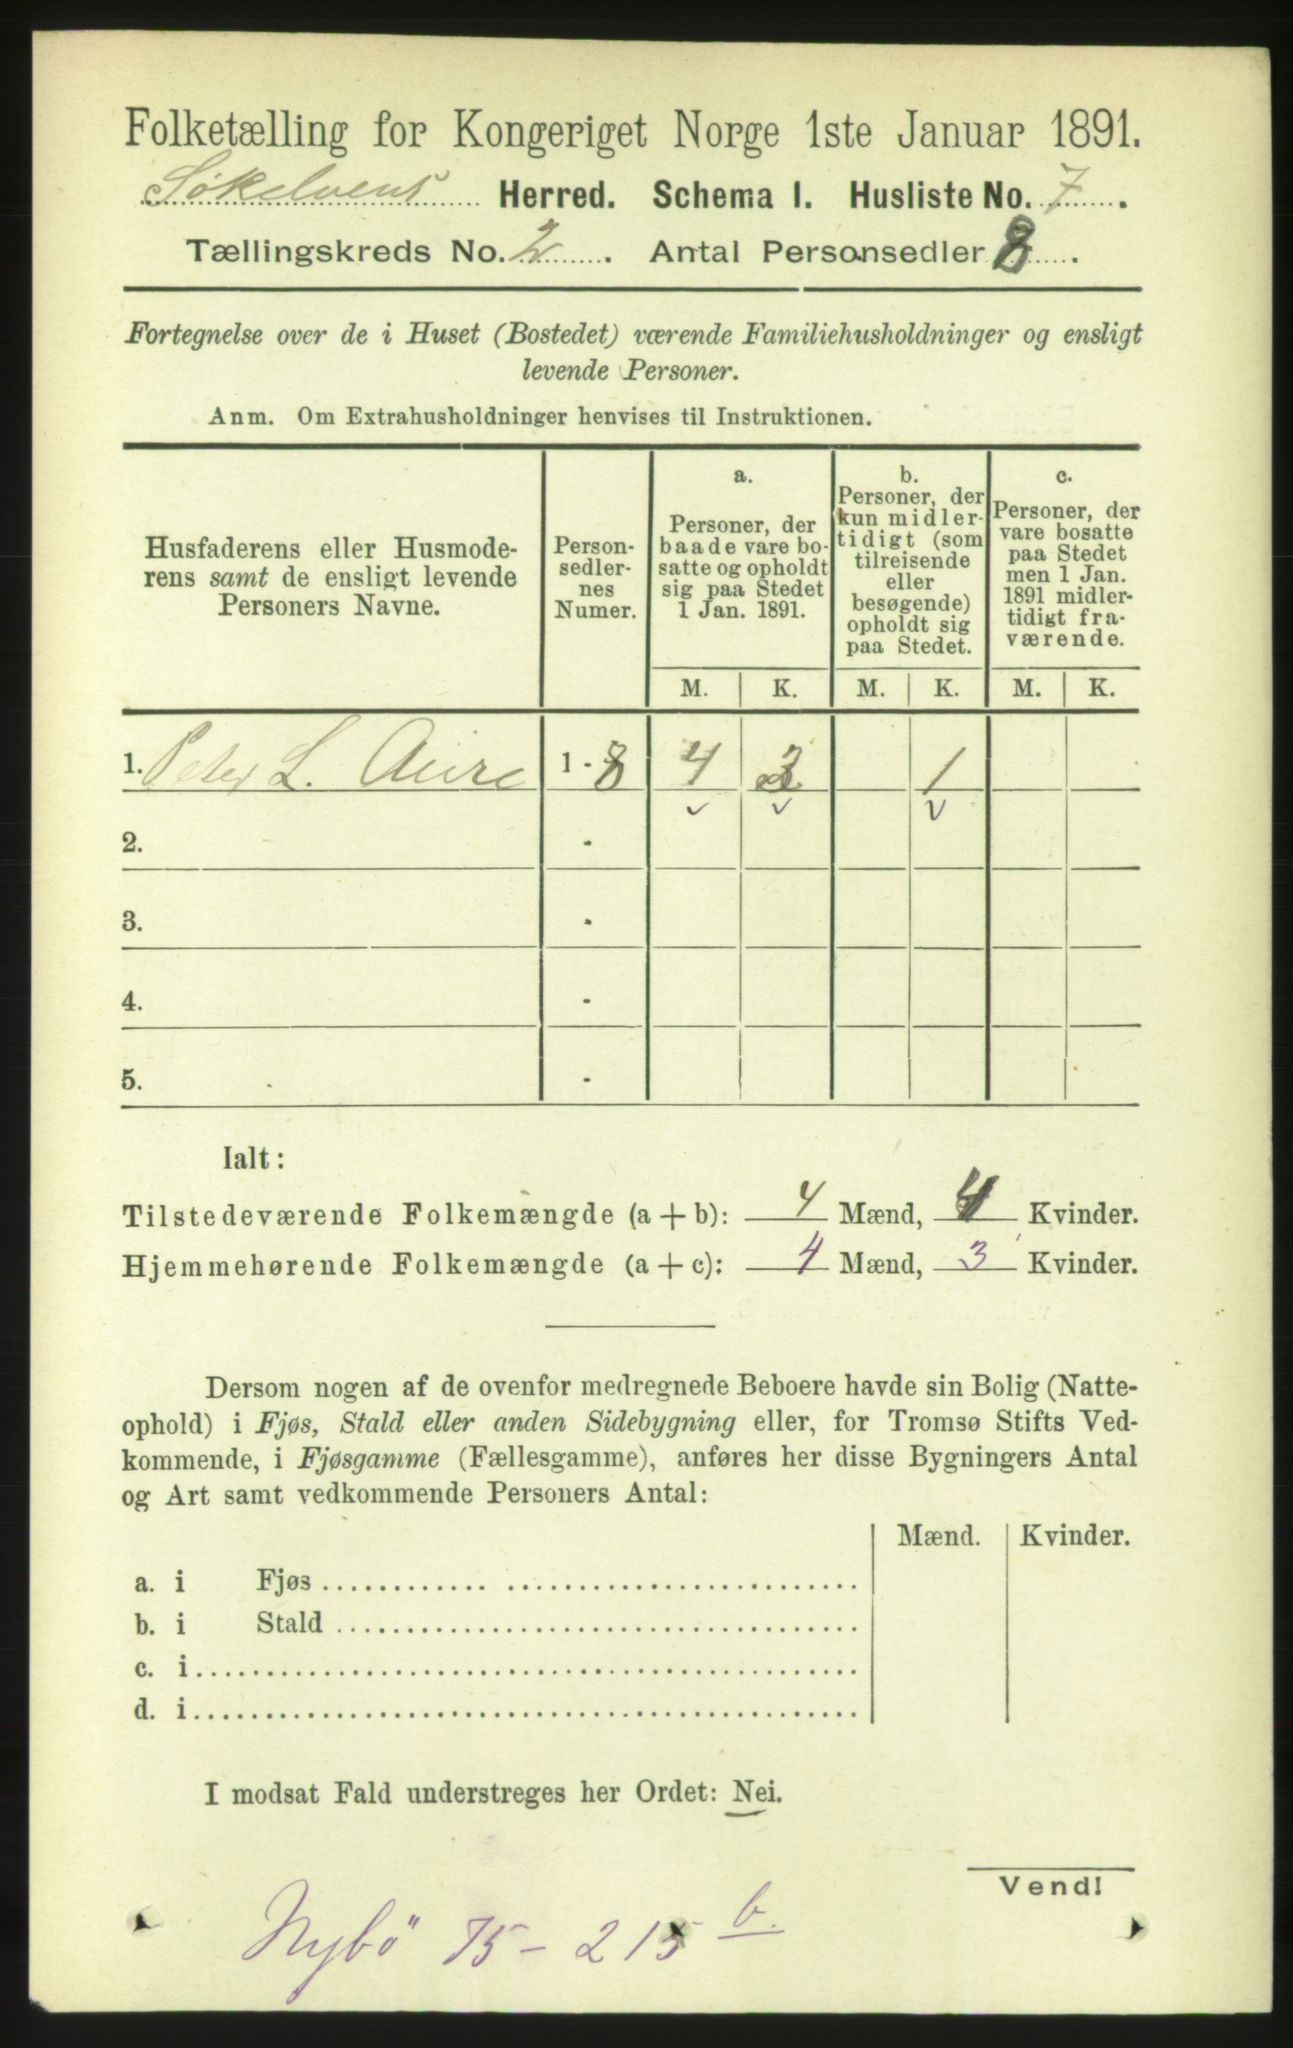 Folketælling for Kongeriget Norge 1ste Januar 1891.
Søkelvens Herred. Schema I. Husliste No. 7.
Tællingskreds No. 2. Antal Personsedler 8.
Fortegnelse over de i Huset (Bostedet) værende Familiehusholdninger og ensligt
levende Personer.
Anm. Om Extrahusholdninger henvises til Instruktionen.
Husfaderens eller Husmode-
rens samt de ensligt levende
Personers Navne.
Person-
sedler-
nes
Numer.
a.
Personer, der
baade vare bo-
satte og opholdt
sig paa Stedet
1 Jan. 1891.
b.
Personer, der
kun midler-
tidigt (som
tilreisende
eller
besøgende)
opholdt sig
paa Stedet.
c.
Personer, der
vare bosatte
paa Stedet
men 1 Jan.
1891 midler-
tidigt fra-
værende.
M. K. M. K. M. K.
1. Peter L. Aure 1 - 8 4 3 1
2. -
3. -
4. -
5. -
Ialt:
Tilstedeværende Folkemængde (a + b): 4 Mænd, 4 Kvinder.
Hjemmehørende Folkemængde (a + c): 4 Mænd, 3 Kvinder.
Dersom nogen af de ovenfor medregnede Beboere havde sin Bolig (Natte-
ophold) i Fjøs, Stald eller anden Sidebygning eller, for Tromsø Stifts Ved-
kommende, i Fjøsgamme (Fællesgamme), anføres her disse Bygningers Antal
og Art samt vedkommende Personers Antal:
Mænd. Kvinder.
a. i Fjøs
b. i Stald
c. i
d. i
I modsat Fald understreges her Ordet: Nei.
Vend!
Nybö 75 - 215 b.